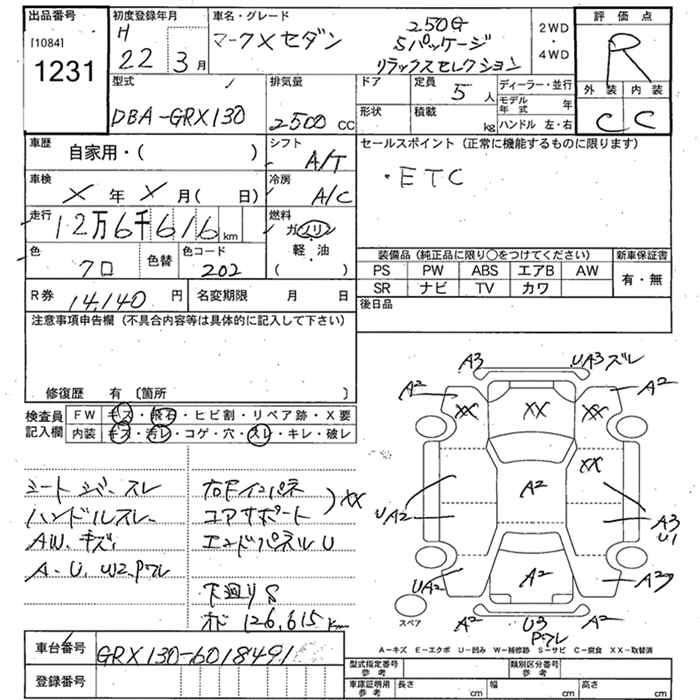 出品番号
[1084]
1231
初度登録年月
H
22 3月
車名・グレード
マークXセダン
250G
Sパッケージ
リラックスセレクション
2WD
・
4WD
評価点
R
外装 内装
C C
型式
DBA-GRX130
排気量
2500 CC
ドア
定員
5 人
形状
積載
kg
ディーラー・並行
モデル年式 年
ハンドル 左・右
車歴
自家用・( )
シフト
A/T
セールスポイント(正常に機能するものに限ります)
・ETC
車検
X 年 X 月( 日)
冷房
A/C
走行
12万6千616 km
燃料
ガソリン
・
軽・油
( )
色
クロ
色替
色コード
202
装備品(純正品に限り○をつけてください)
新車保証書
PS PW ABS エアB AW
SR ナビ TV カワ
有・無
R券 14,140 円
名変期限 月 日
後日品
注意事項申告欄(不具合内容等は具体的に記入して下さい)
修復歴 有 〔箇所 〕
検査員
記入欄
FW キズ・飛石・ヒビ割・リペア跡・X要
内装 キズ・汚レ・コゲ・穴・スレ・キレ・破レ
シートシワ、スレ
ハンドルスレ
AW、キズ
A-U、W2、Pワレ
右Fインパネ
コアサポート
エンドパネルU
)XX
下廻りS
オド 126,615km
A3
UA3ズレ
A2
XX
XX
XX
A2
XX
UA2
A2
A3
U1
UA2
A2
A2
A2
U3
Pワレ
A2
スペア
A-キズ E-エクボ U-凹み W-補修跡 S-サビ C-腐食 XX-取替済
車台番号
GRX130-6018491
登録番号
型式指定番号
参考
類別区分番号
参考
車庫証明用
参考
長さ cm
幅 cm
高さ cm